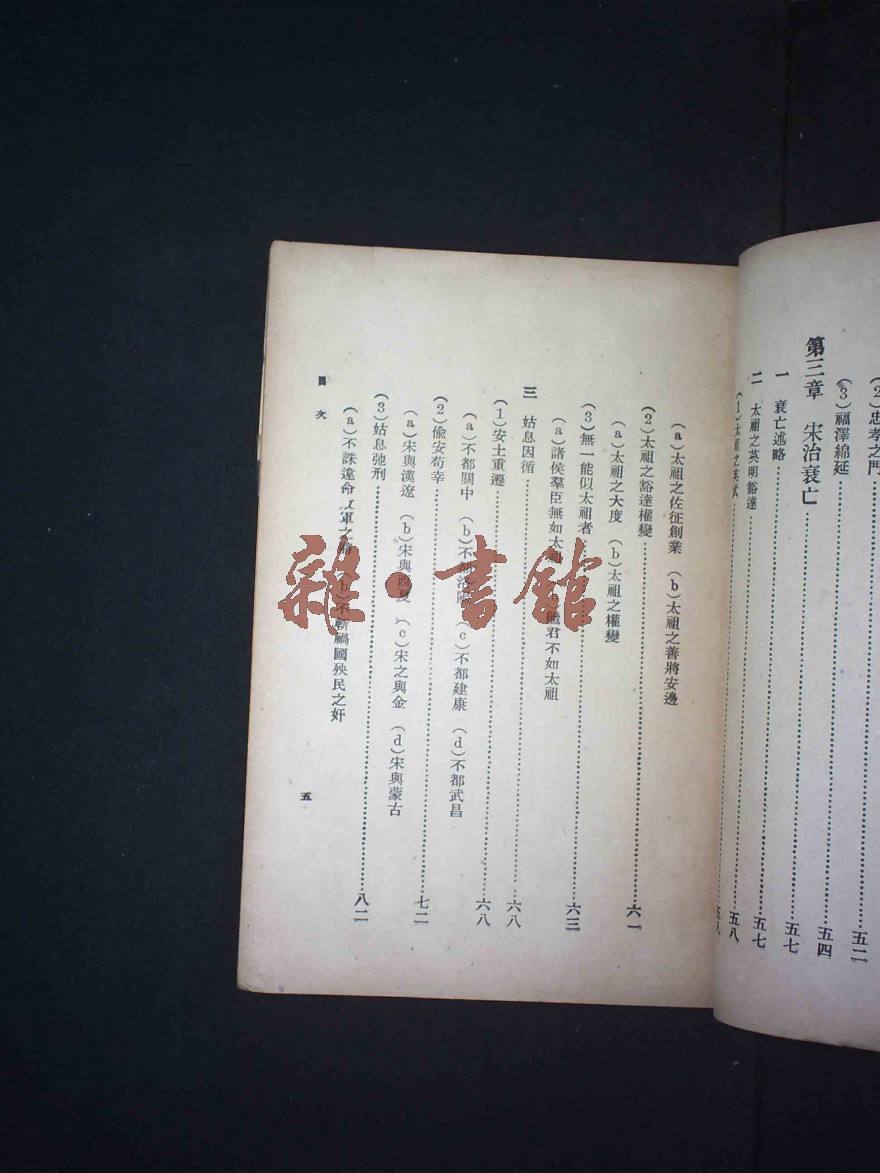 (2)忠孝之門……五二
(3)福澤綿延……五四
第三章 宋治衰亡……五七
一 衰亡述略……五七
二 太祖之英明豁達……五八
(1)太祖之英武……五八
(a)太祖之佐征創業 (b)太祖之善將安邊
(2)太祖之豁達權變……六一
(a)太祖之大度 (b)太祖之權變
(3)無一能似太祖者……六三
(a)諸侯羣臣無如太祖 繼君不如太祖
三 姑息因循……六八
(1)安土重遷……六八
(a)不都關中 (b)不都洛陽 (c)不都建康 (d)不都武昌
(2)偷安苟幸……七二
(a)宋與漢遼 (b)宋與西夏 (c)宋之與金 (d)宋與蒙古
(3)姑息弛刑……八二
(a)不誅違命 軍之 (b)不斬禍國殃民之奸
目次
五
雜·書館